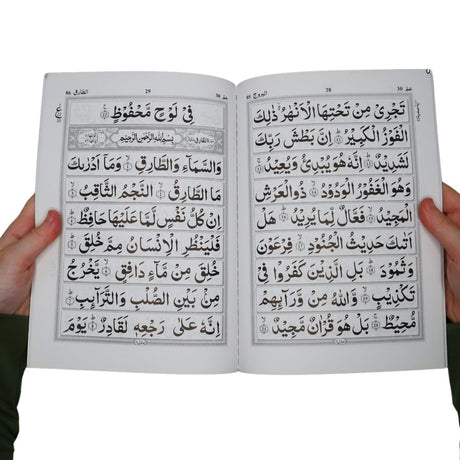 عم ٣٠ 28 البروج ٨٥
تَجْرِىْ مِنْ تَحْتِهَا الْاَنْهٰرُ ذٰلِكَ
الْفَوْزُ الْكَبِيْرُ اِنَّ بَطْشَ رَبِّكَ
لَشَدِيْدٌ اِنَّهٗ هُوَ يُبْدِئُ وَيُعِيْدُ
وَهُوَ الْغَفُوْرُ الْوَدُوْدُ ذُو الْعَرْشِ
الْمَجِيْدُ فَعَّالٌ لِّمَا يُرِيْدُ هَلْ
اَتٰىكَ حَدِيْثُ الْجُنُوْدِ فِرْعَوْنَ
وَثَمُوْدَ بَلِ الَّذِيْنَ كَفَرُوْا فِىْ
تَكْذِيْبٍ وَّاللّٰهُ مِنْ وَّرَآئِهِمْ
مُّحِيْطٌ بَلْ هُوَ قُرْاٰنٌ مَّجِيْدٌ
عم ٣٠ 29 الطارق ٨٦
فِىْ لَوْحٍ مَّحْفُوْظٍ
بِسْمِ اللّٰهِ الرَّحْمٰنِ الرَّحِيْمِ
وَالسَّمَآءِ وَالطَّارِقِ وَمَاۤ اَدْرٰىكَ
مَا الطَّارِقُ النَّجْمُ الثَّاقِبُ
اِنْ كُلُّ نَفْسٍ لَّمَّا عَلَيْهَا حَافِظٌ
فَلْيَنْظُرِ الْاِنْسَانُ مِمَّ خُلِقَ
خُلِقَ مِنْ مَّآءٍ دَافِقٍ يَّخْرُجُ
مِنْ بَيْنِ الصُّلْبِ وَالتَّرَآئِبِ
اِنَّهٗ عَلٰى رَجْعِهٖ لَقَادِرٌ يَوْمَ